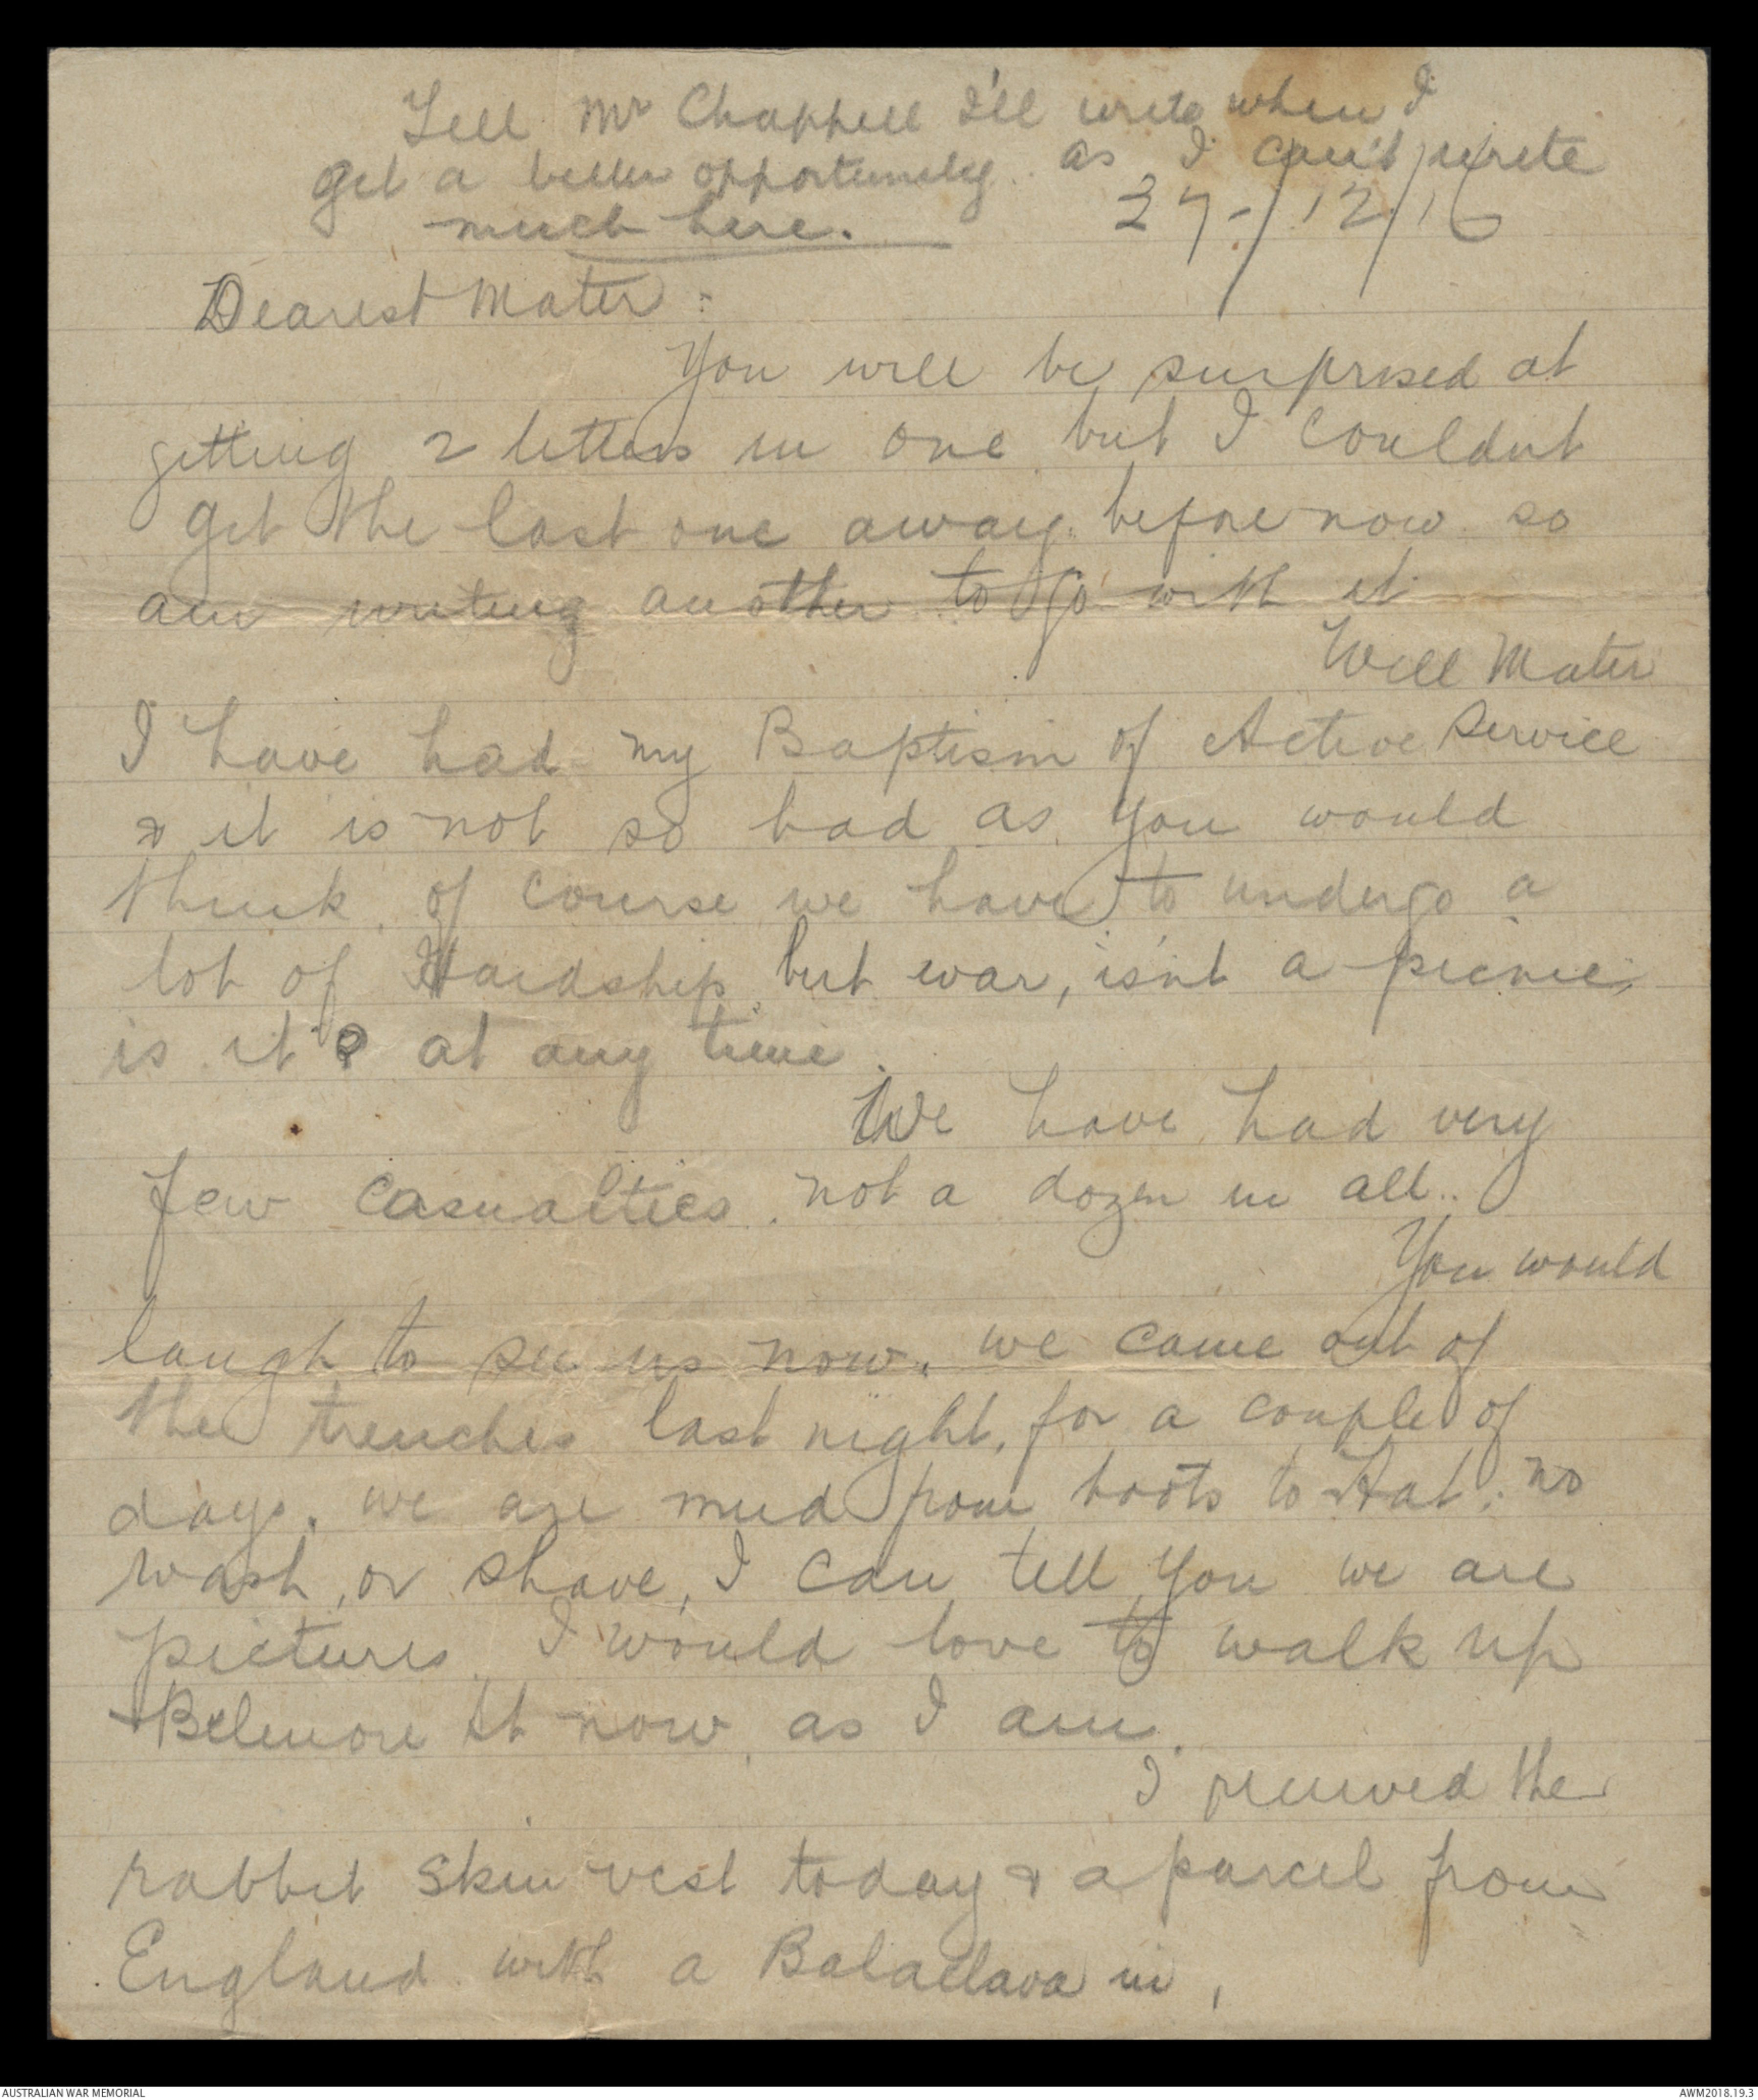 Tell Mr Chappell I'll write when I
get a better opportunity. as I can't write
much here.
27-/12/16
Dearest Mater:
You will be surprised at
getting 2 letters in one but I couldn't
get the last one away before now so
am writing another to go with it
Well Mater
I have had my Baptism of Active Service
& it is not so bad as you would
think, of course we have to undergo a
lot of Hardship, but war, isn't a picnic,
is it? at any time.
We have had very
few casualties, not a dozen in all..
You would
laugh to see us now. we came out of
the trenches last night, for a couple of
days. we are mud from boots to Hat, no
wash, or shave, I can tell you we are
pictures. I would love to walk up
Belmore St now, as I am.
I received the
rabbit skin vest today & a parcel from
England with a Balaclava in,
AUSTRALIAN WAR MEMORIAL
AWM2018.19.3